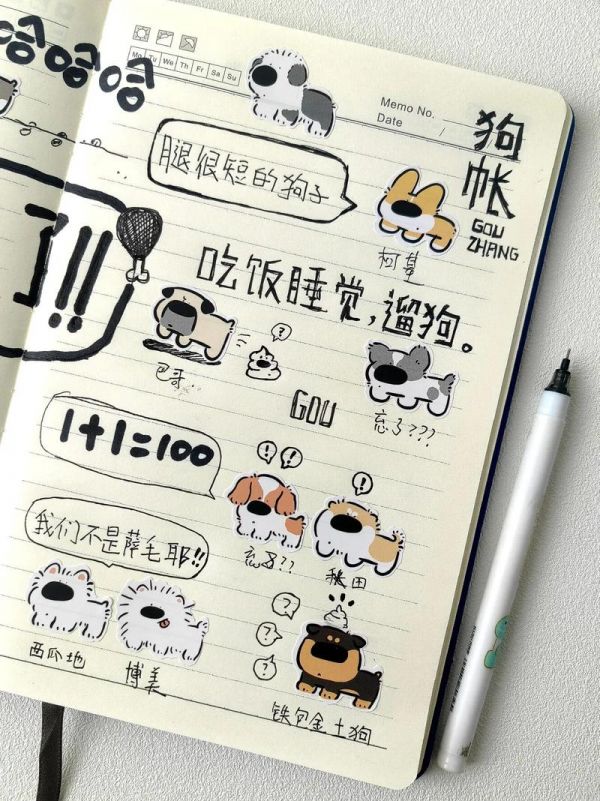 哈哈哈
Mo Tu We Th Fr Sa Su
Memo No.
Date /
狗帐
GOU
ZHANG
腿很短的狗子
柯基
了!!!
吃饭睡觉,遛狗。
?
巴哥..
GOU
忘了???
1+1=100
! !!
!
忘了??
秋田
我们不是萨毛耶!!
西瓜地
博美
?
?
?
铁包金土狗